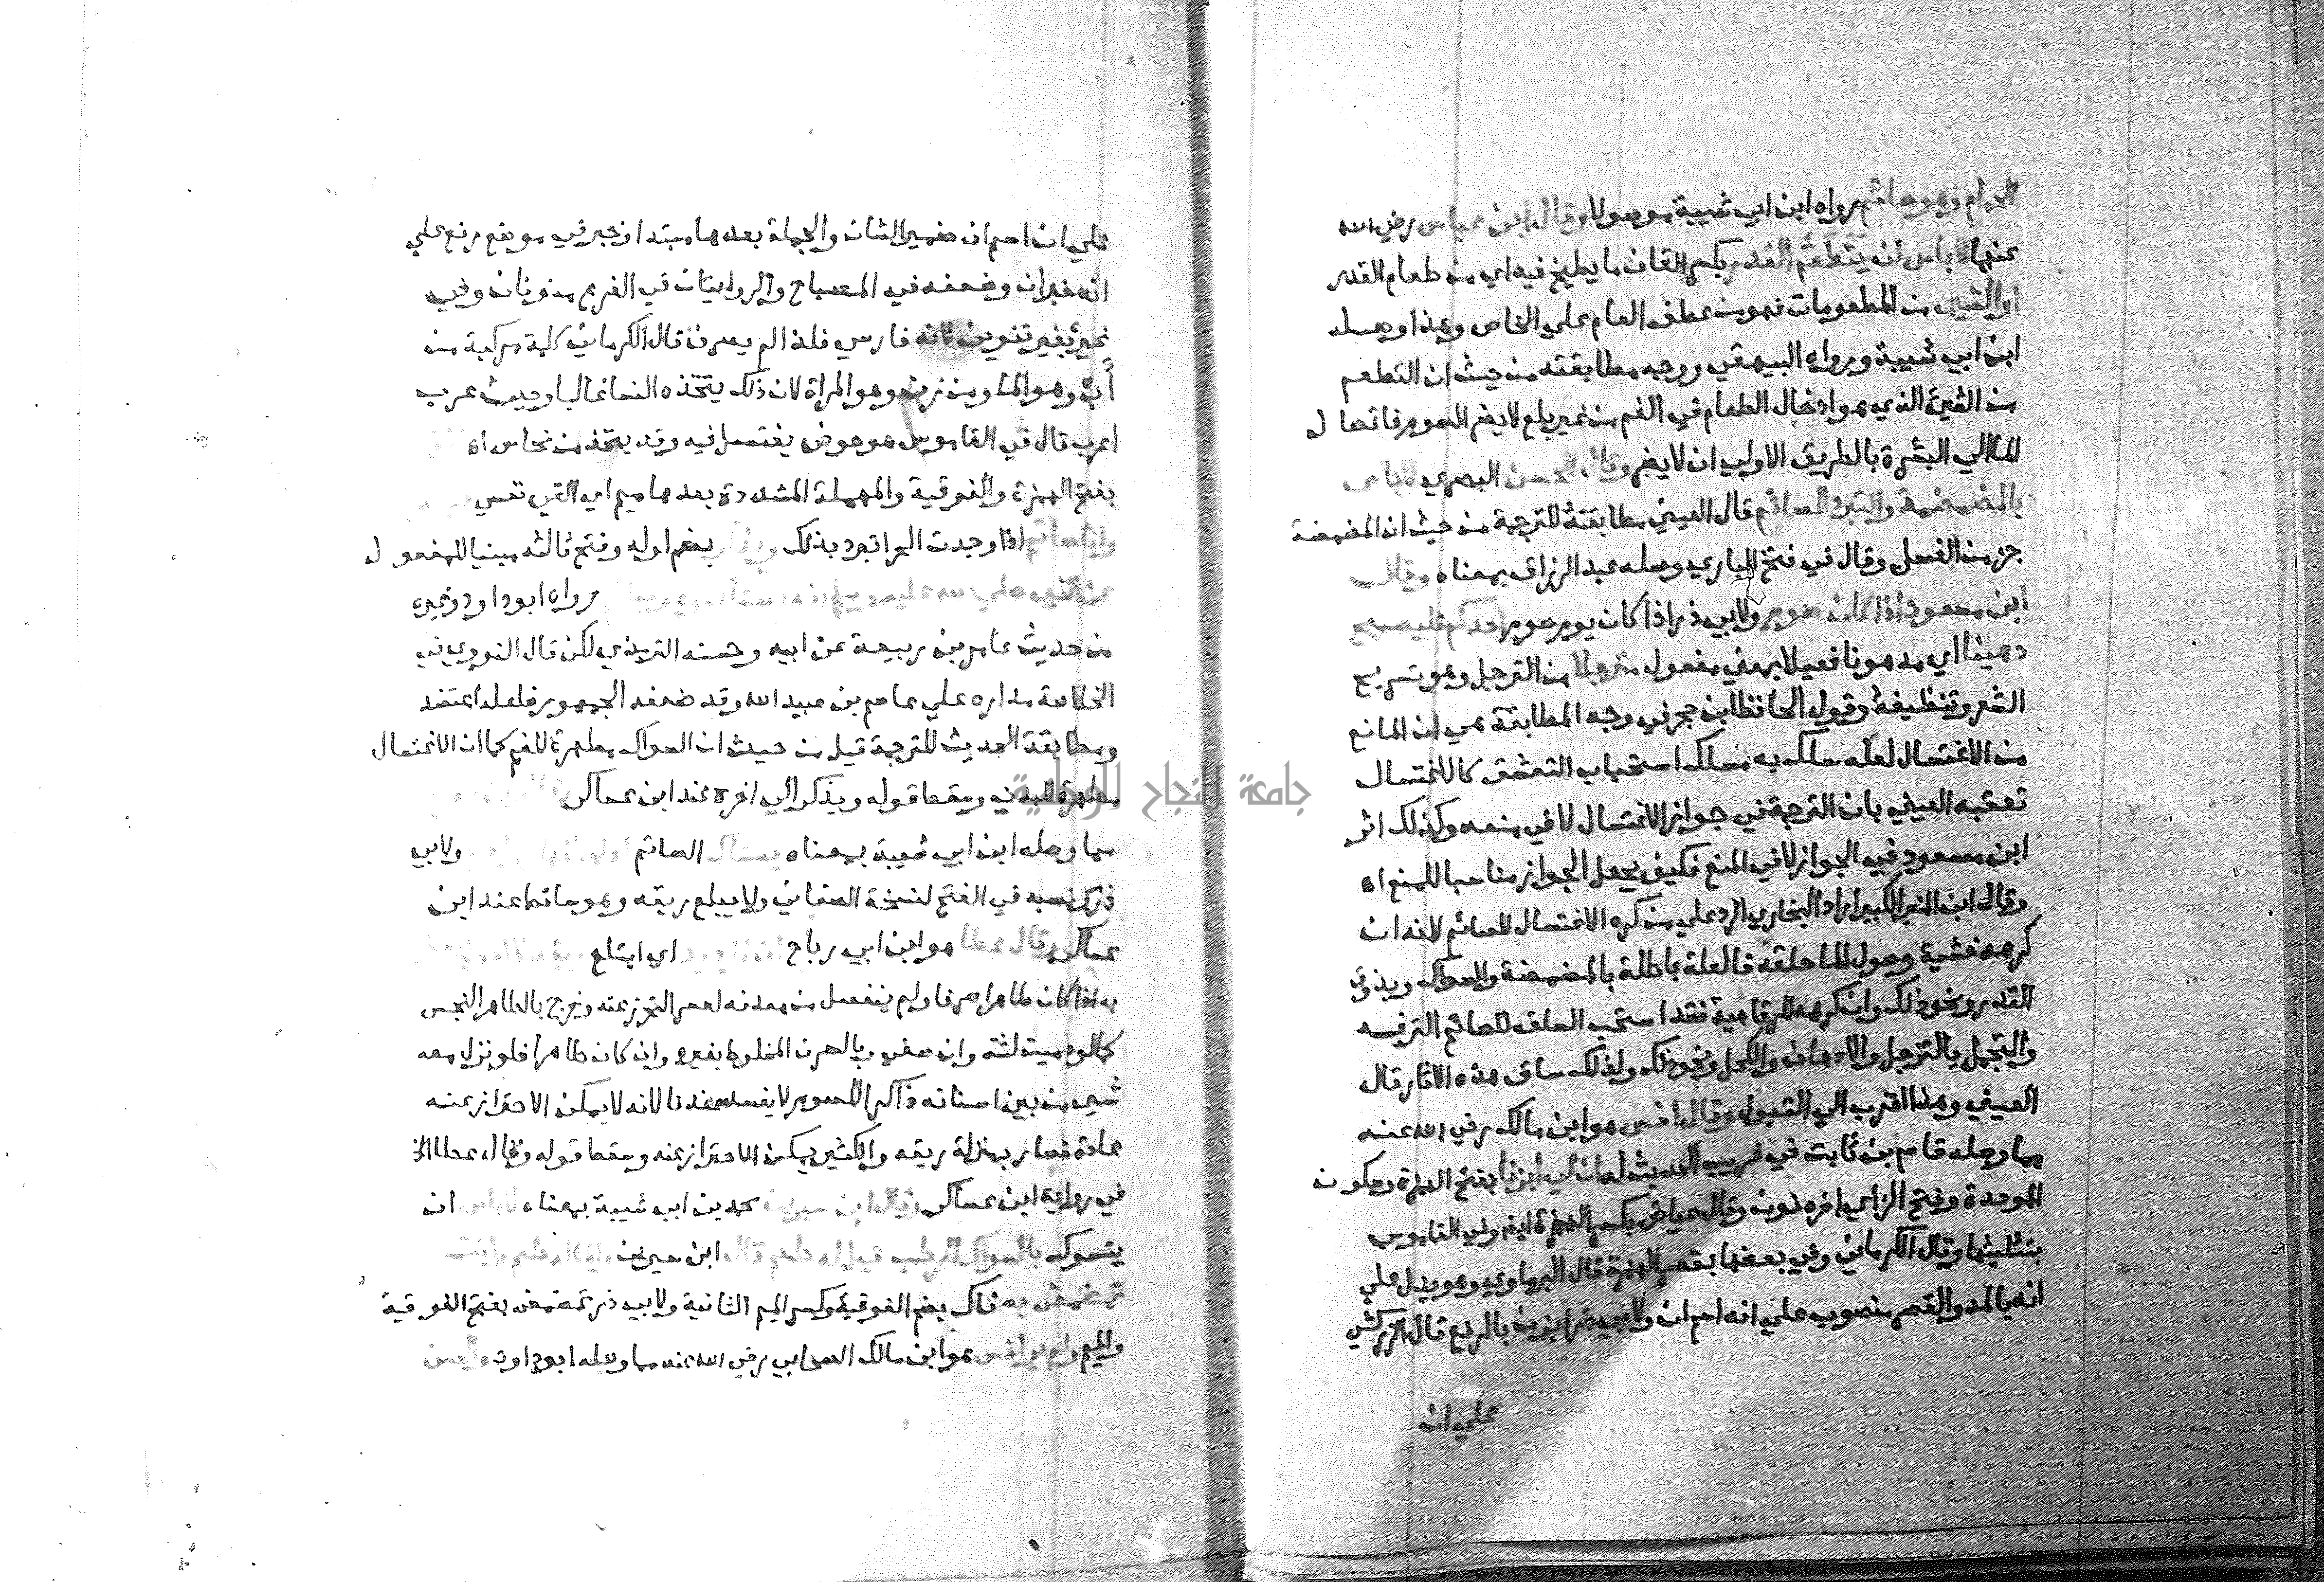 الحمام وهو صائم رواه ابن ابي شيبة موصولا وقال ابن عباس رضي الله
عنهما لا باس ان يتطعم القدر بكسر القاف ما يطبخ فيه اي من طعام القدر
او الشيء من المطعومات فهو من عطف العام علي الخاص وهذا وصله
ابن ابي شيبة ورواه البيهقي ووجه مطابقته من حيث ان التطعم
من الشيء الذي هو ادخال الطعام في الفم من غير بلع لا يضر الصوم فايصال
الماء الي البشرة بالطريق الاولي ان لا يضر وقال الحسن البصري لا باس
بالمضمضة والتبرد للصائم قال العيني مطابقته للترجمة من حيث ان المضمضة
جزء من الغسل وقال في فتح الباري وصله عبد الرزاق بمعناه وقال
ابن مسعود اذا كان صوم ولابي ذر اذا كان يوم صوم احدكم فليصبح
دهينا اي مدهونا فعيلا بمعني مفعول مترجلا من الترجل وهو تسريح
الشعر وتنظيفه وقول الحافظ ابن حجر في وجه المطابقة هي ان المانع
من الاغتسال لعله سلك به مسلك استحباب التقشف كالاغتسال
تعقبه العيني بان الترجمة في جواز الاغتسال لا في منعه وكذلك اثر
ابن مسعود في الجواز لا في المنع فكيف يجعل الجواز مناسبا للمنع اه
وقال ابن المنير الكبير اراد البخاري الرد علي من كره الاغتسال للصائم لانه ان
كرهه خشية وصول الماء حلقه فالعلة باطلة بالمضمضة والسواك وبذوق
القدر ونحو ذلك وان كرهه للرفاهية فقد استحب السلف للصائم الترفه
والتجمل بالترجل والادهان والكحل ونحو ذلك ولذلك ساق هذه الاثار قال
العيني وهذا اقرب الي القبول وقال انس هو ابن مالك رضي الله عنه
مما وصله قاسم بن ثابت في غريب الحديث له ان لي ابزنا بفتح الهمزة وسكون
الموحدة وفتح الزاي اخره نون وقال عياض بكسر الهمزة ايضا وفي القاموس
بتثليثها وقال الكرماني وفي بعضها بقصر الهمزة قال البرماوي وهو يدل علي
انه بالمد والقصر منصوب علي انه اسم ان ولابي ذر ابزن بالرفع قال الزركشي
علي ان
علي ان اسم ان ضمير الشان والجملة بعدها مبتدا وخبر في موضع رفع علي
انه خبر ان وضعفه في المصباح والروايتان في الفرع منونتان وفي
غيره بغير تنوين لانه فارسي فلذا لم يصرف قال الكرماني كلمة مركبة من
اب وهو الماء ومن زن وهو المراة لان ذلك يتخذه النسا غالبا وحيث عرب
اعرب قال في القاموس هو حوض يغتسل فيه وقد يتخذ من نحاس اه
بفتح الهمزة والفوقية والمهملة المشددة بعدها ميم اي القي نفسي
وانا صائم اذا وجدت الحر اتبرد بذلك ويذكر بضم اوله وفتح ثالثه مبنيا للمفعول
عن النبي صلي الله عليه وسلم رواه ابو داود وغيره
من حديث عامر بن ربيعة عن ابيه وحسنه الترمذي لكن قال النووي في
الخلاصة مداره علي عاصم بن عبيد الله وقد ضعفه الجمهور فلعله اعتضد
ومطابقة الحديث للترجمة قيل من حيث ان السواك مطهرة للفم كما ان الاغتسال
مطهرة للبدن وسقط قوله ويذكر الي اخره عند ابن عساكر
مما وصله ابن ابي شيبة بمعناه يستاك الصائم ولابي
ذر نسبه في الفتح لنسخة الصغاني ولا يبلع ريقه وهو ساقط عند ابن
عساكر وقال عطا هو ابن ابي رباح اي ابتلع
به اذا كان طاهرا صرفا ولم ينفصل من معدنه لعسر التحرز عنه وخرج بالطاهر النجس
كما لو دميت لثته وان صفي وبالصرف المخلوط بغيره وان كان طاهرا فلو نزل معه
شيء من بين اسنانه ذاكرا للصوم لا يفسد عندنا لانه لا يمكن الاحتراز عنه
عادة فصار بمنزلة ريقه والكثير يمكن الاحتراز عنه وسقط قوله وقال عطا الخ
في رواية ابن عساكر وقال ابن سيرين محمد بن ابي شيبة بمعناه لا باس ان
يتسوك بالسواك الرطب قيل له طعم قال ابن سيرين والماء له طعم وانت
تمضمض به فاك بضم الفوقية وكسر الميم الثانية ولابي ذر تمضمض بفتح الفوقية
والميم ولم ير انس هو ابن مالك الصحابي رضي الله عنه مما وصله ابو داود والحسن
جامعة النجاح الوطنية